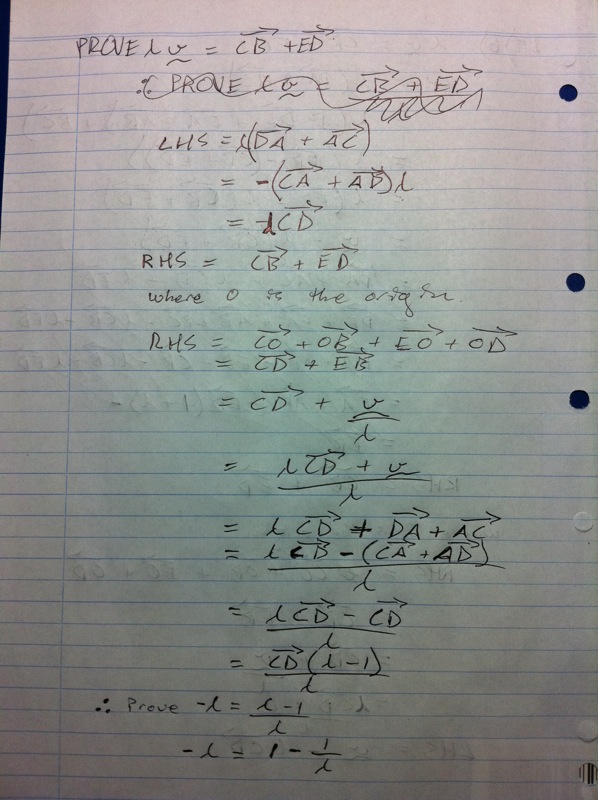 PROVE λ v = CB + ED
∴ PROVE λ v = CB + ED
LHS = λ(DA + AC)
= -(CA + AD)λ
= -λCD
RHS = CB + ED
where O is the origin.
RHS = CO + OB + EO + OD
= CD + EB
= CD + v/λ
= λCD + v/λ
= λCD + DA + AC
= λCB - (CA + AD)/λ
= λCD - CD/λ
= CD(λ-1)/λ
∴ Prove -λ = λ-1/λ
-λ = 1 - 1/λ